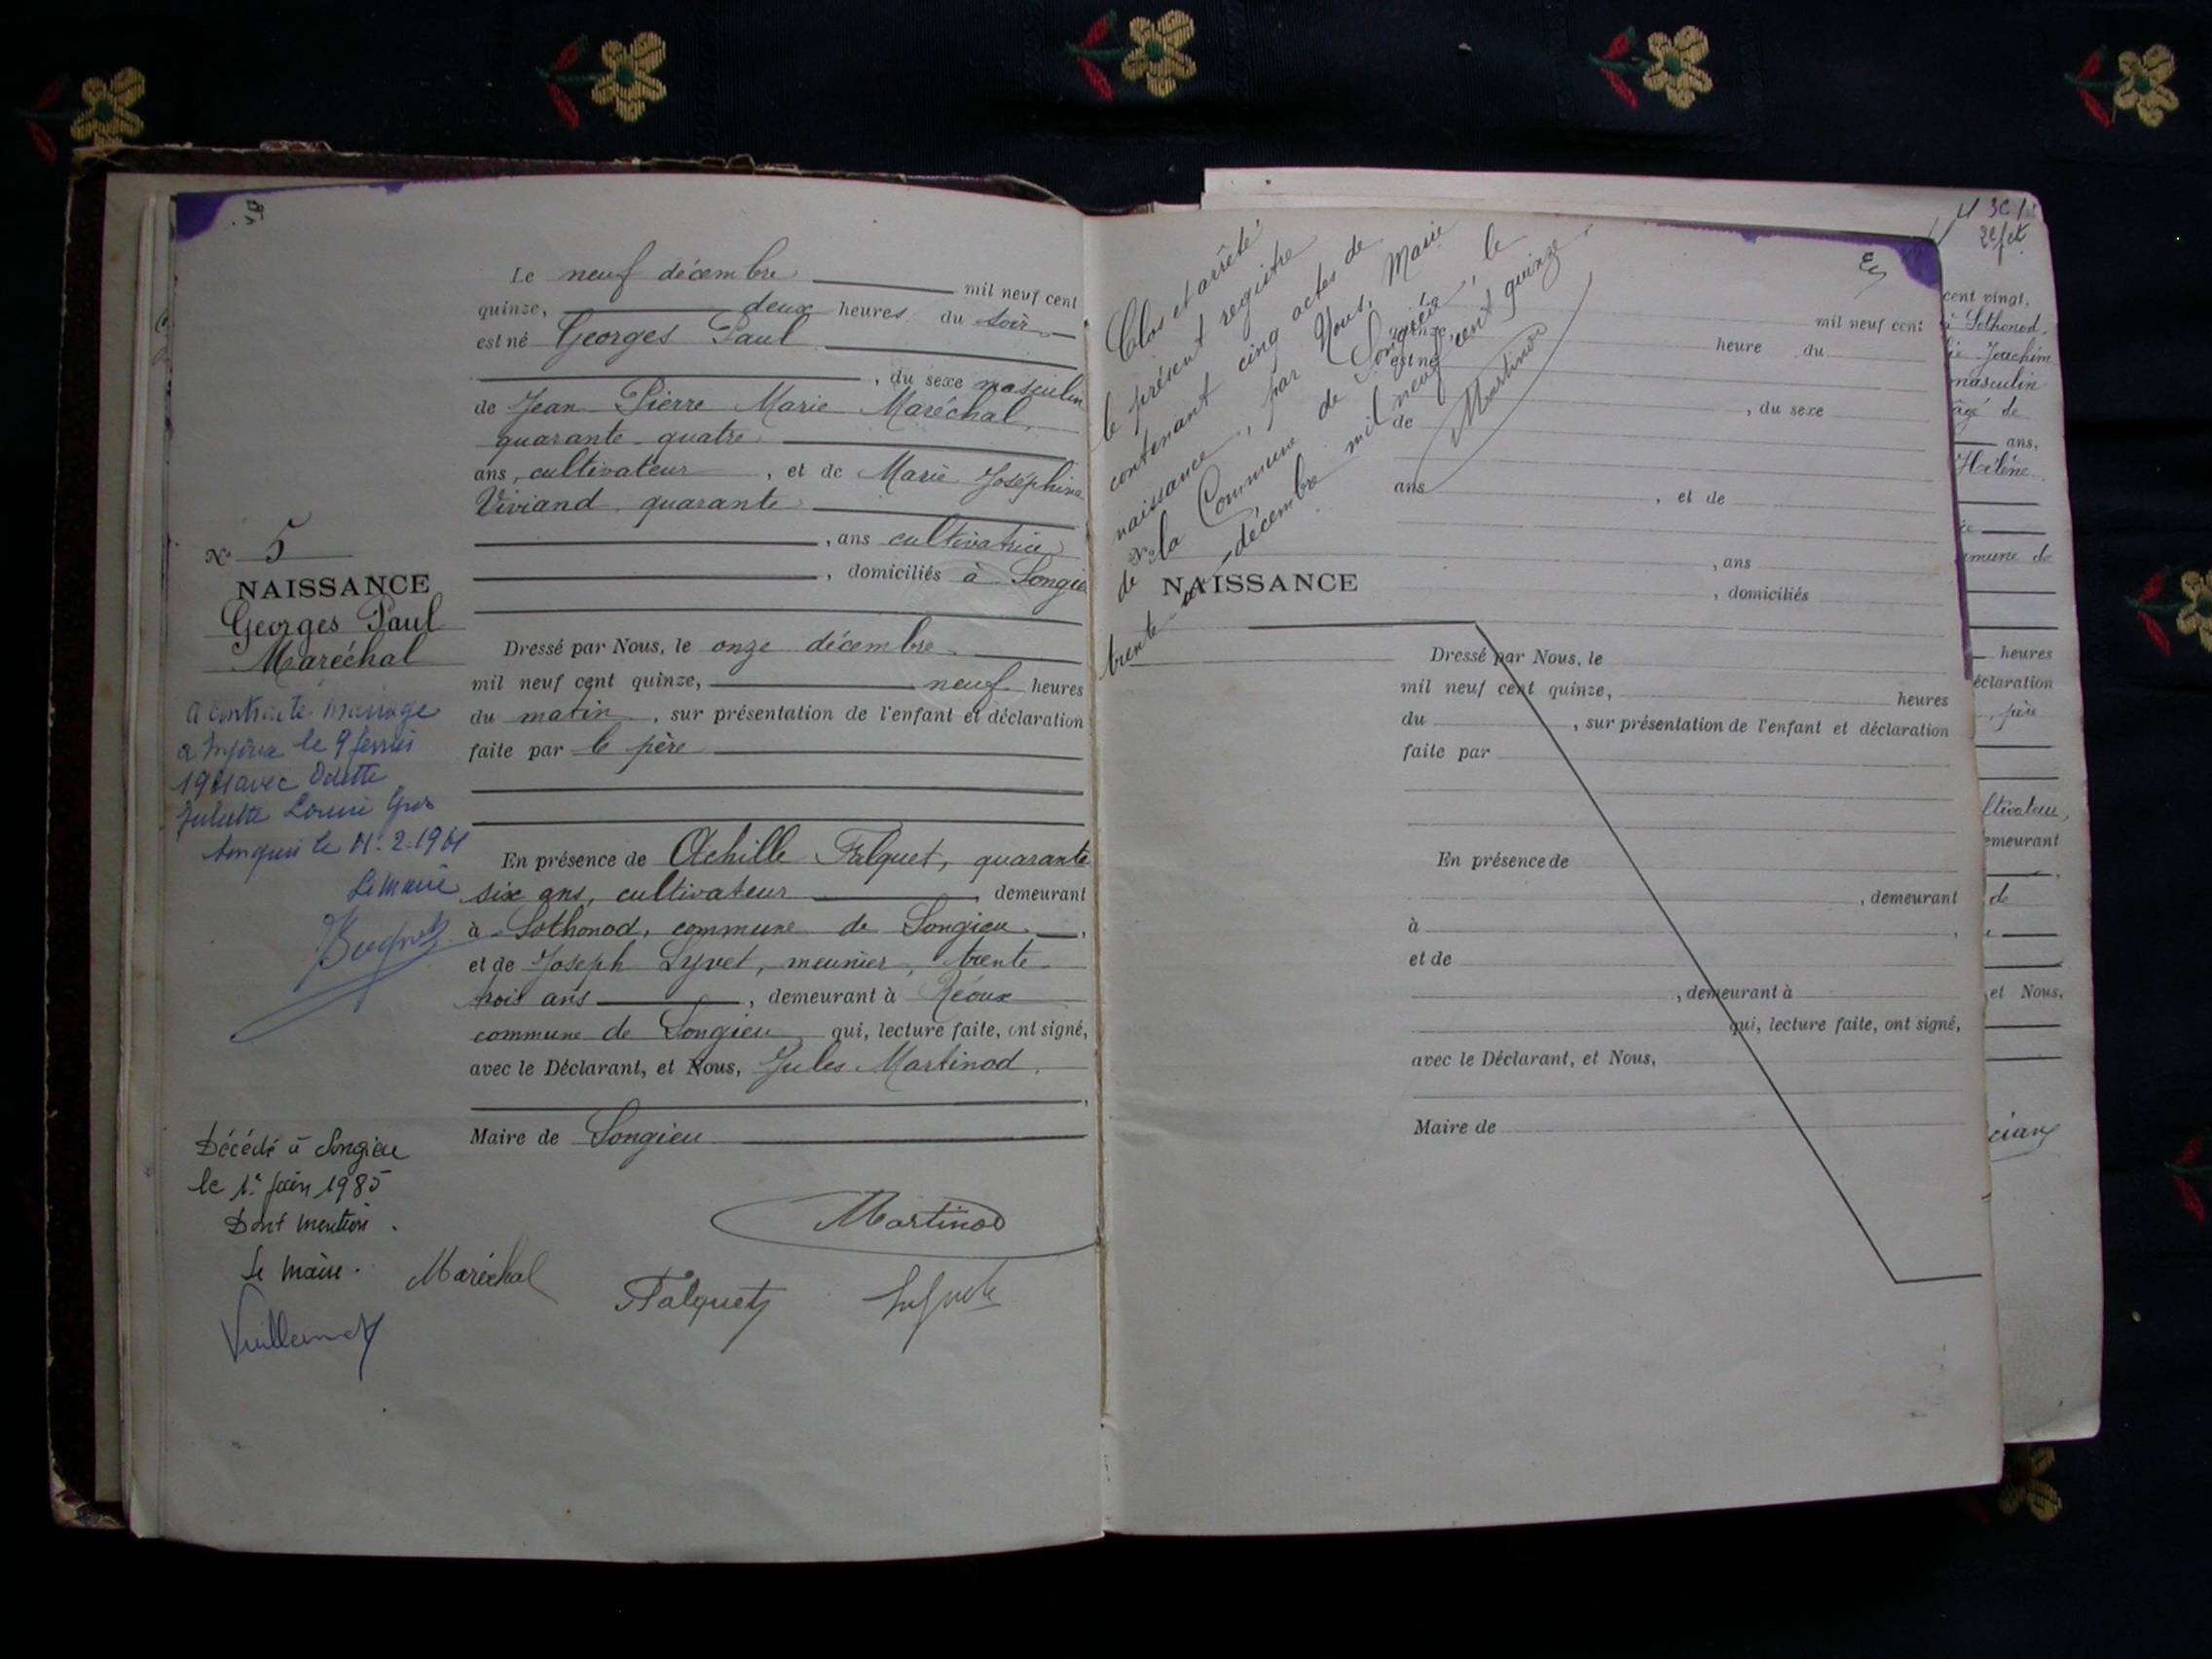 Le neuf décembre mil neuf cent
quinze, deux heures du soir
est né Georges Paul
, du sexe masculin
de Jean Pierre Marie Maréchal,
quarante-quatre
ans, cultivateur, et de Marie Joséphine
Viviand, quarante
, ans cultivatrice
, domiciliés à Songieu
N° 5
NAISSANCE
Georges Paul
Maréchal
Dressé par Nous, le onze décembre
mil neuf cent quinze, neuf heures
du matin, sur présentation de l'enfant et déclaration
faite par le père
a contracté mariage
le 9 février
avec Odette
Juliette Louise Gros
Songieu le
Le Maire
En présence de Achille Falquet, quarante
six ans, cultivateur demeurant
à Sothonod, commune de Songieu,
et de Joseph Lyvet, meunier, trente-
trois ans, demeurant à Réoux
commune de Songieu qui, lecture faite, ont signé,
avec le Déclarant, et Nous, Jules Martinod,
Maire de Songieu
Décédé à Songieu
le 1er juin 1985
Dont mention.
Le maire.
Vuillemet
Martinod
Maréchal
Falquet
Clos et arrêté
le présent registre
contenant cinq actes de
naissance, par Nous, Maire
de la Commune de Songieu, le
trente-un décembre mil neuf cent quinze
Martinod
Le mil neuf cent
quinze, heure du
est né
, du sexe
de
ans, et de
, ans
, domiciliés
N°
NAISSANCE
Dressé par Nous, le
mil neuf cent quinze, heures
du, sur présentation de l'enfant et déclaration
faite par
En présence de
, demeurant
à,
et de
, demeurant à
qui, lecture faite, ont signé,
avec le Déclarant, et Nous,
Maire de
cent vingt,
à Sothonod,
Joachim
masculin
âgé de
ans,
Hélène
mune de
heures
éclaration
, père
ltivateur,
emeurant
de
et Nous,